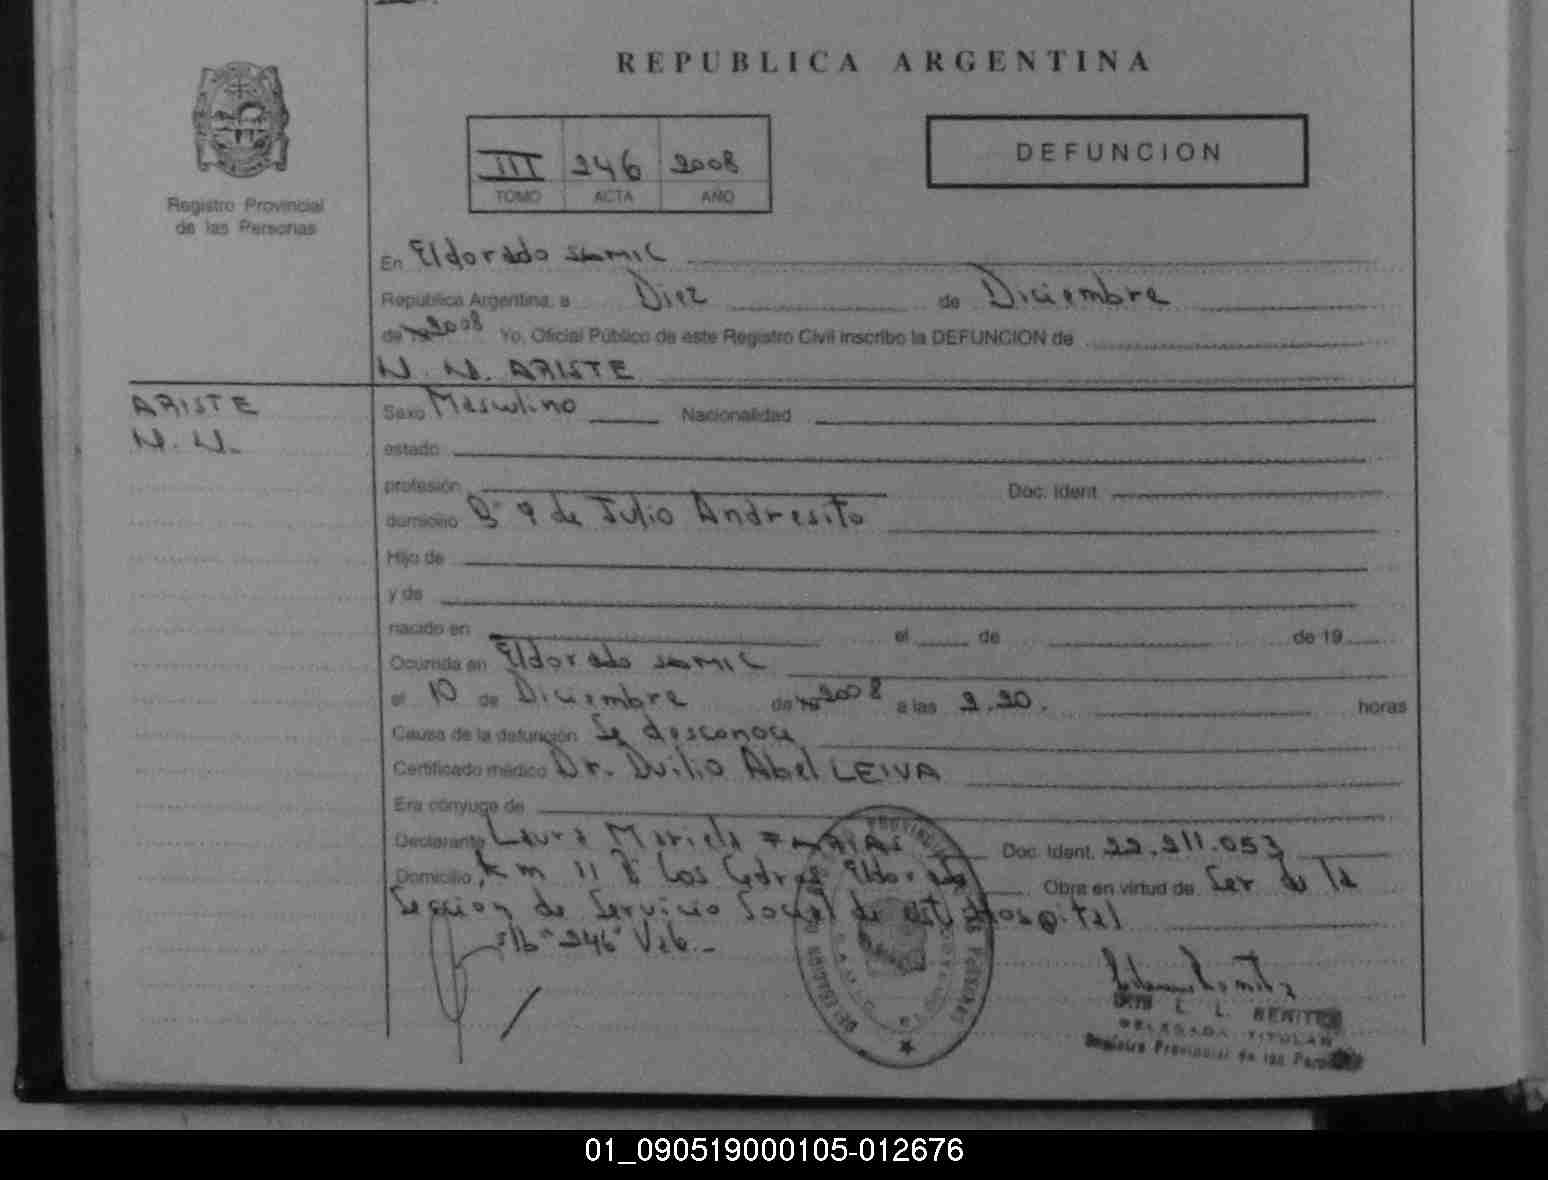 REPUBLICA ARGENTINA
Registro Provincial
de las Personas
III 246 2008
TOMO ACTA AÑO
DEFUNCION
En Eldorado samic
República Argentina, a Diez de Diciembre
de 19 2008 Yo, Oficial Público de este Registro Civil inscribo la DEFUNCION de
N. N. ARISTE
ARISTE
N. N.
Sexo Masculino Nacionalidad
estado
profesión Doc. Ident.
domicilio Bº 9 de Julio Andresito
Hijo de
y de
nacido en el de de 19
Ocurrida en Eldorado samic
el 10 de Diciembre de 19 2008 a las 2.20. horas
Causa de la defunción Se desconoce
Certificado médico Dr. Duilio Abel LEIVA
Era cónyuge de
Declarante Laura Mariela Doc. Ident. 22.211.053
Domicilio Km 11 Bº Los Cedros Eldorado Obra en virtud de Ser de la
Seccion de Servicio Social de este Hospital
"246" Vale.-
L. L. BENITEZ
DELEGADA TITULAR
Registro Provincial de las Personas
01_090519000105-012676